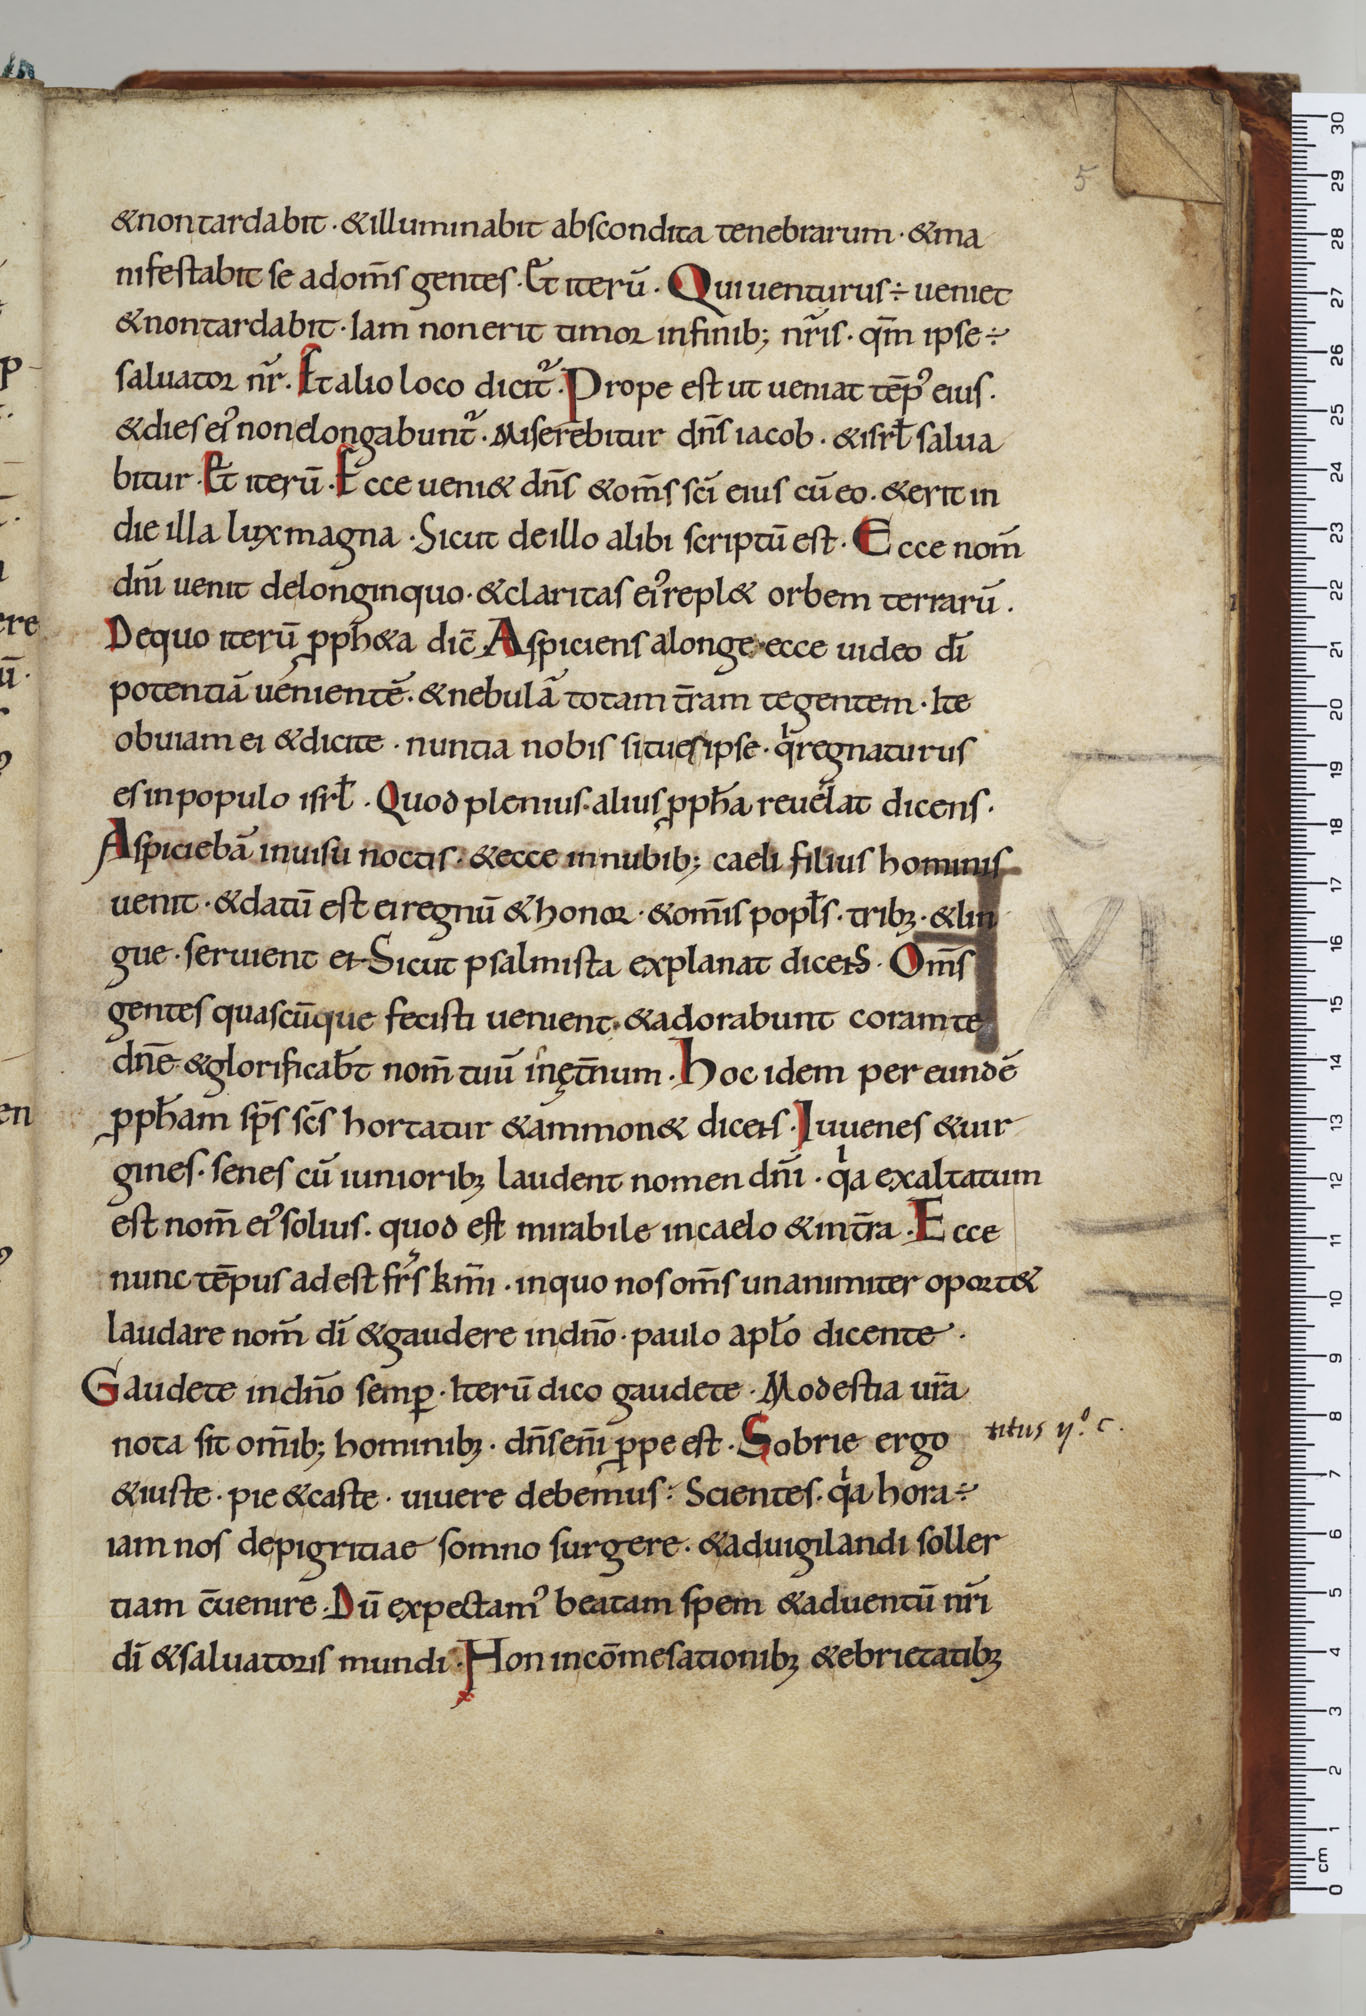 5
&non tardabit · &illuminabit abscondita tenebrarum · &ma
nifestabit se ad om̄s gentes · Et iterū · Qui uenturus ÷ ueniet
&non tardabit · Iam non erit timor in finib; nr̄is · qm̄ ipse ÷
saluator nr̄ · Et alio loco dicit᷑ · Prope est ut ueniat tēp᾽ eius ·
&dies ei᾽ non elongabunt᷑ · Miserebitur dn̄s iacob · &isrł salua
bitur · Et iterū · Ecce ueni& dn̄s &om̄s sc̄i eius cū eo · &erit in
die illa lux magna · Sicut de illo alibi scriptū est · Ecce nom̄
dn̄i uenit de longinquo · &claritas ei᾽ repl& orbem terrarū ·
De quo iterū ꝓph&a dic̄ Aspiciens a longe · ecce uideo dī
potentiā uenientē · &nebulā totam tr̄am tegentem · Ite
obuiam ei &dicite · nuntia nobis si tu es ipse · qͥ regnaturus
es in populo isrł · Quod plenius · alius ꝓph̄a reuelat dicens ·
Aspiciebā in uisu noctis · &ecce in nubib; caeli filius hominis
uenit · &datū est ei regnū &honor · &om̄is popłs · tribꝫ · &lin
gue · seruient ei · Sicut psalmista explanat dicens · Om̄s
gentes quascūque fecisti uenient · &adorabunt coram te
dn̄e · &glorificab̄t nom̄ tuū in ęt̄num · Hoc idem per eundē
ꝓph̄am sp̄s sc̄s hortatur &ammon& dicens · Iuuenes &uir
gines · senes cū iunioribꝫ laudent nomen dn̄i · qͥa exaltatum
est nom̄ ei᾽ solius · quod est mirabile in caelo &in tr̄a · Ecce
nunc tēpus adest fr̄s km̄i · in quo nos om̄s unanimiter oport&
laudare nom̄ dī &gaudere in dn̄o · paulo apło dicente ·
Gaudete in dn̄o semꝑ · Iterū dico gaudete · Modestia ur̄a
nota sit om̄ib; hominibꝫ · dn̄s eni̅ ꝓpe est · Sobrie ergo
titus ij.º c.
&iuste · pie &caste · uiuere debemus : Scientes · qͥa hora ÷
iam nos de pigritiae somno surgere · &ad uigilandi soller
tiam c̄uenire · Dū expectam᾽ beatam spem &aduentū nr̄i
dī &saluatoris mundi · Non in cōmesationibꝫ &ebrietatibꝫ
XI